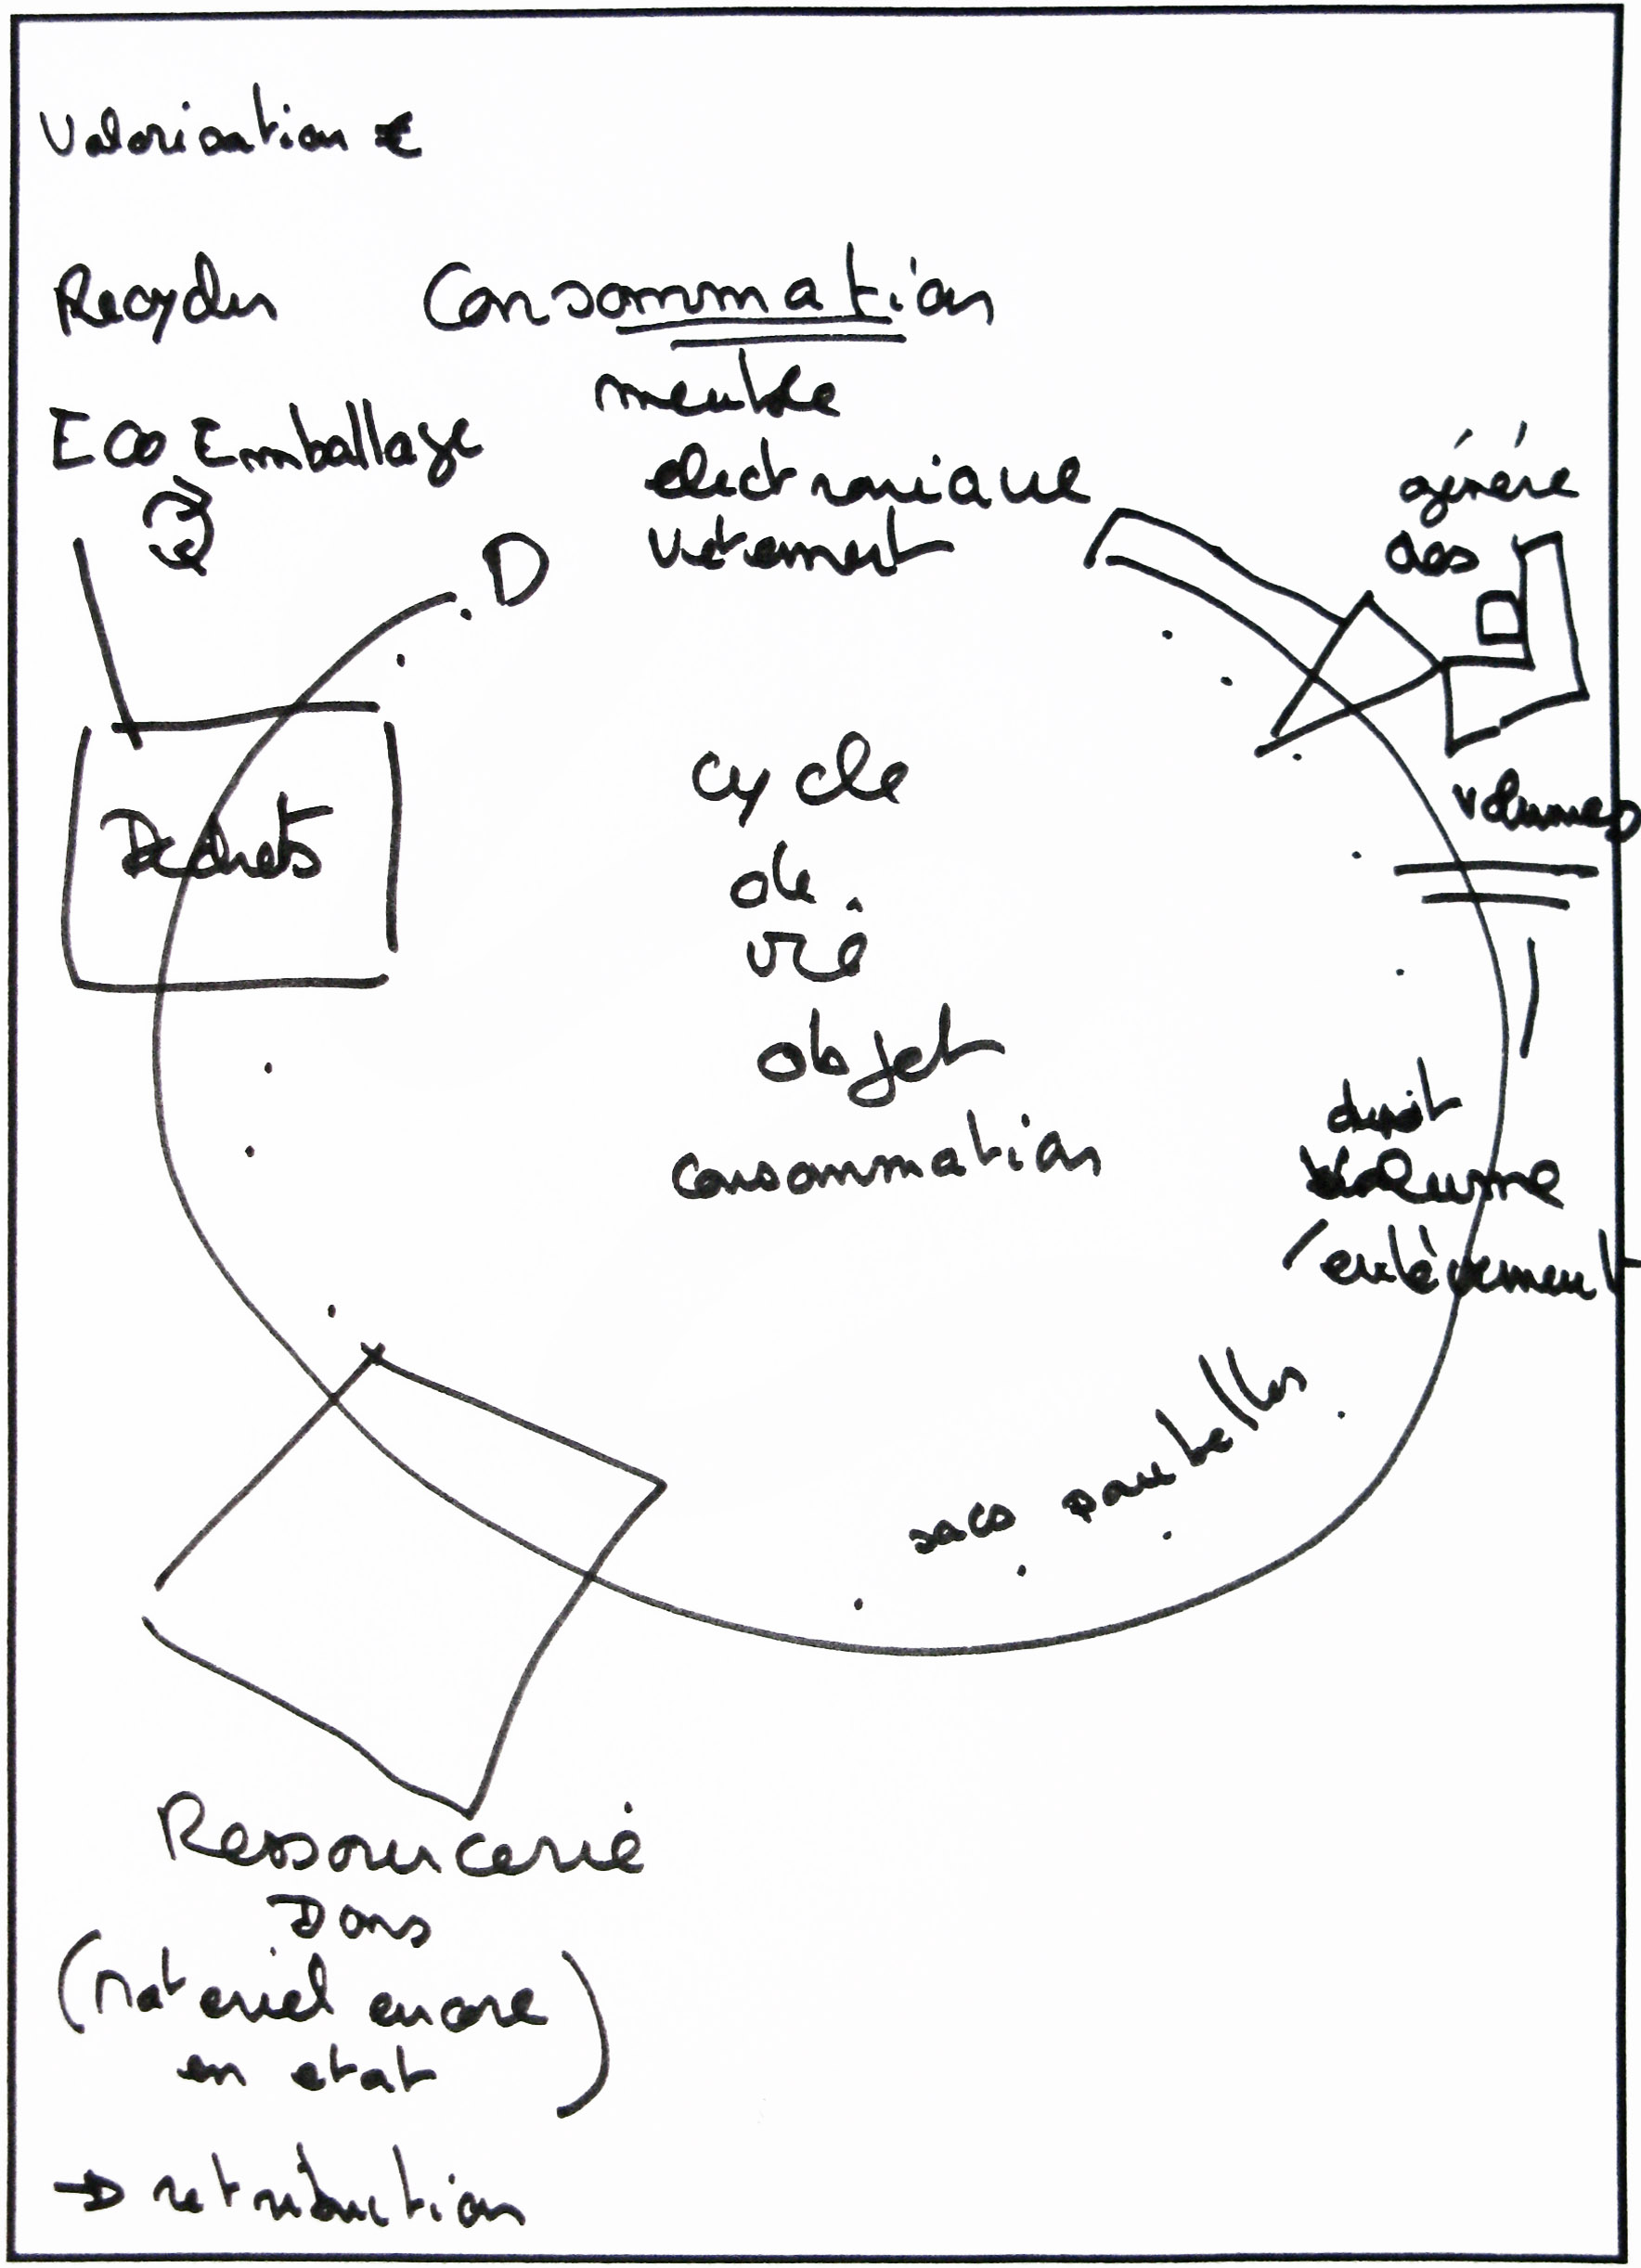 Valorisation €
Recycler
Consommation
meuble
electronique
vetement
Eco Emballage
génére
des
volumes
Dechets
cycle
de
vie
objet
consommation
depot
Volume
/enlèvement
sacs poubelles
Ressourcerie
Dons
(materiel encore
en etat)
→ retribution